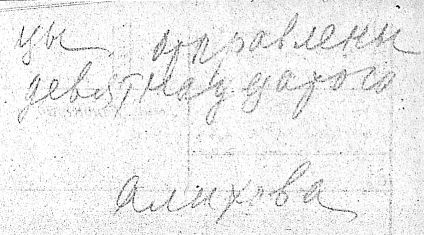 цы отправлены
девятнадцатого
Алихова